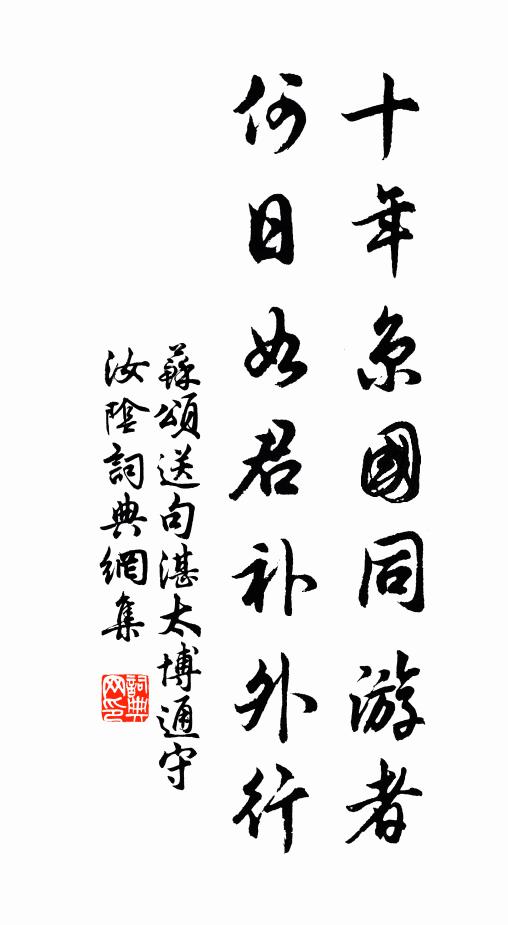 十年京國同游者
何日如君补外行
蘇頌送句湛太博通守
汝陰詞典網集
詞典
网印